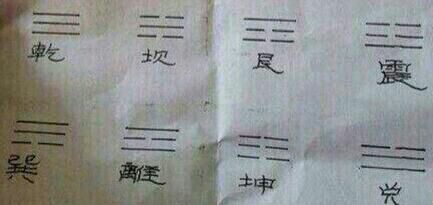 乾 坎 艮 震
巽 離 坤 兑